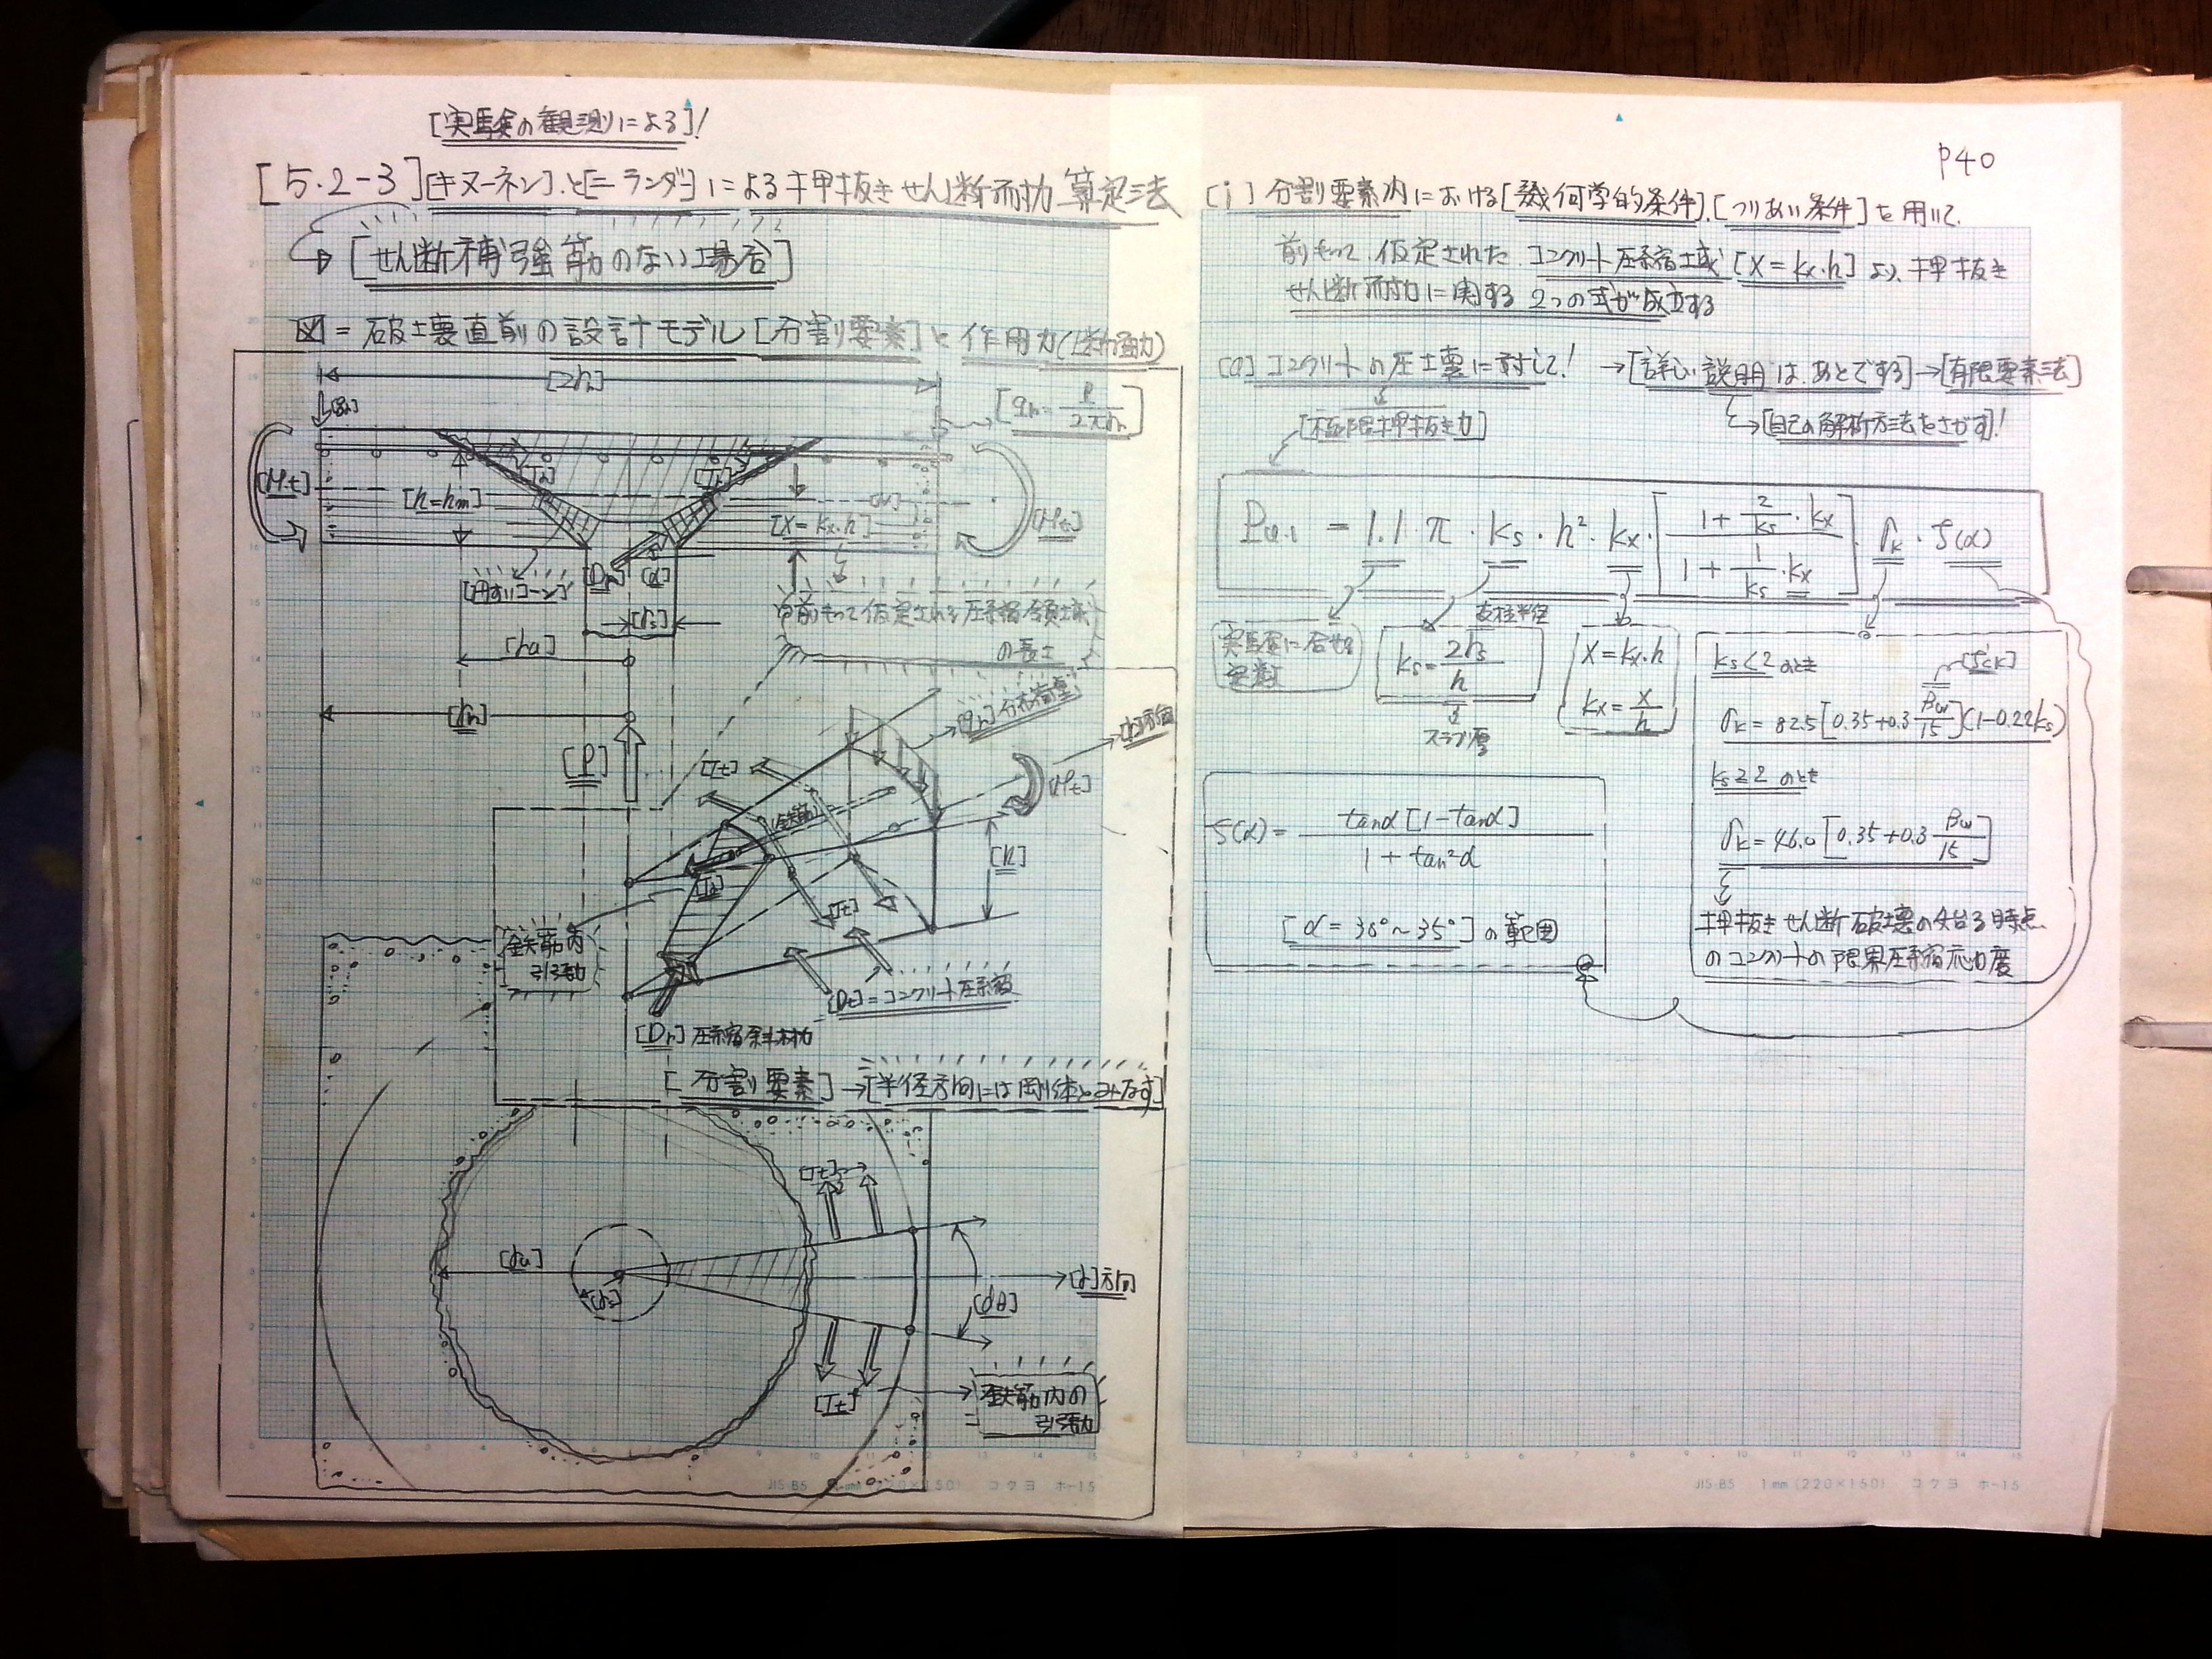 [実験の観測による]!
[5.2-3][キヌーネン]と[ニランダー]による押抜きせん断耐力算定法
[せん断補強筋のない場合]
図=破壊直前の設計モデル[分割要素]と作用力(断面力)
[2rn]
[qn]
[qn = P / 2πrn]
[Mt]
[h=hm]
[Tr]
[Tr]
[X=kx・h]
[Mt]
[円すいコーン]
[Dr]
[α]
[rs]
前もって仮定される圧縮領域の長さ
[ru]
[rn]
[P]
[qn]分布荷重
[r]方向
[Tt]
[Mt]
(鉄筋)
[h]
[Tr]
[Tt]
鉄筋内
引張力
[Dt]=コンクリート圧縮
[Dr]圧縮斜材力
[分割要素]→[半径方向には剛体とみなす]
[Tt]
[ru]
[rs]
[r]方向
[dθ]
[Tt]
鉄筋内の
引張力
JIS B5 1mm (220×150) コクヨ ホ-15
P40
[i]分割要素内における[幾何学的条件].[つりあい条件]を用いて.
前もって.仮定された.コンクリート圧縮域[X=kx・h]より、押抜き
せん断耐力に関する2つの式が成立する
[a]コンクリートの圧壊に対して! →[詳しい説明はあとでする]→[有限要素法]
[極限押抜き力]
→[自己の解析方法をさがす]!
Pu.1 = 1.1・π・ks・h²・kx・[1 + 2/ks・kx / 1 + 1/ks・kx]・σk・f(α)
実験に合せる
定数
支柱半径
ks = 2rs / h
スラブ厚
X = kx・h
kx = x / h
ks<2のとき
[f'ck]
σk = 82.5[0.35+0.3 βw/15](1-0.22ks)
ks≧2のとき
σk = 46.0[0.35+0.3 βw/15]
押抜きせん断破壊の始る時点
のコンクリートの限界圧縮応力度
f(α) = tanα[1-tanα] / 1 + tan²α
[α = 30°~35°]の範囲
JIS B5 1mm (220×150) コクヨ ホ-15